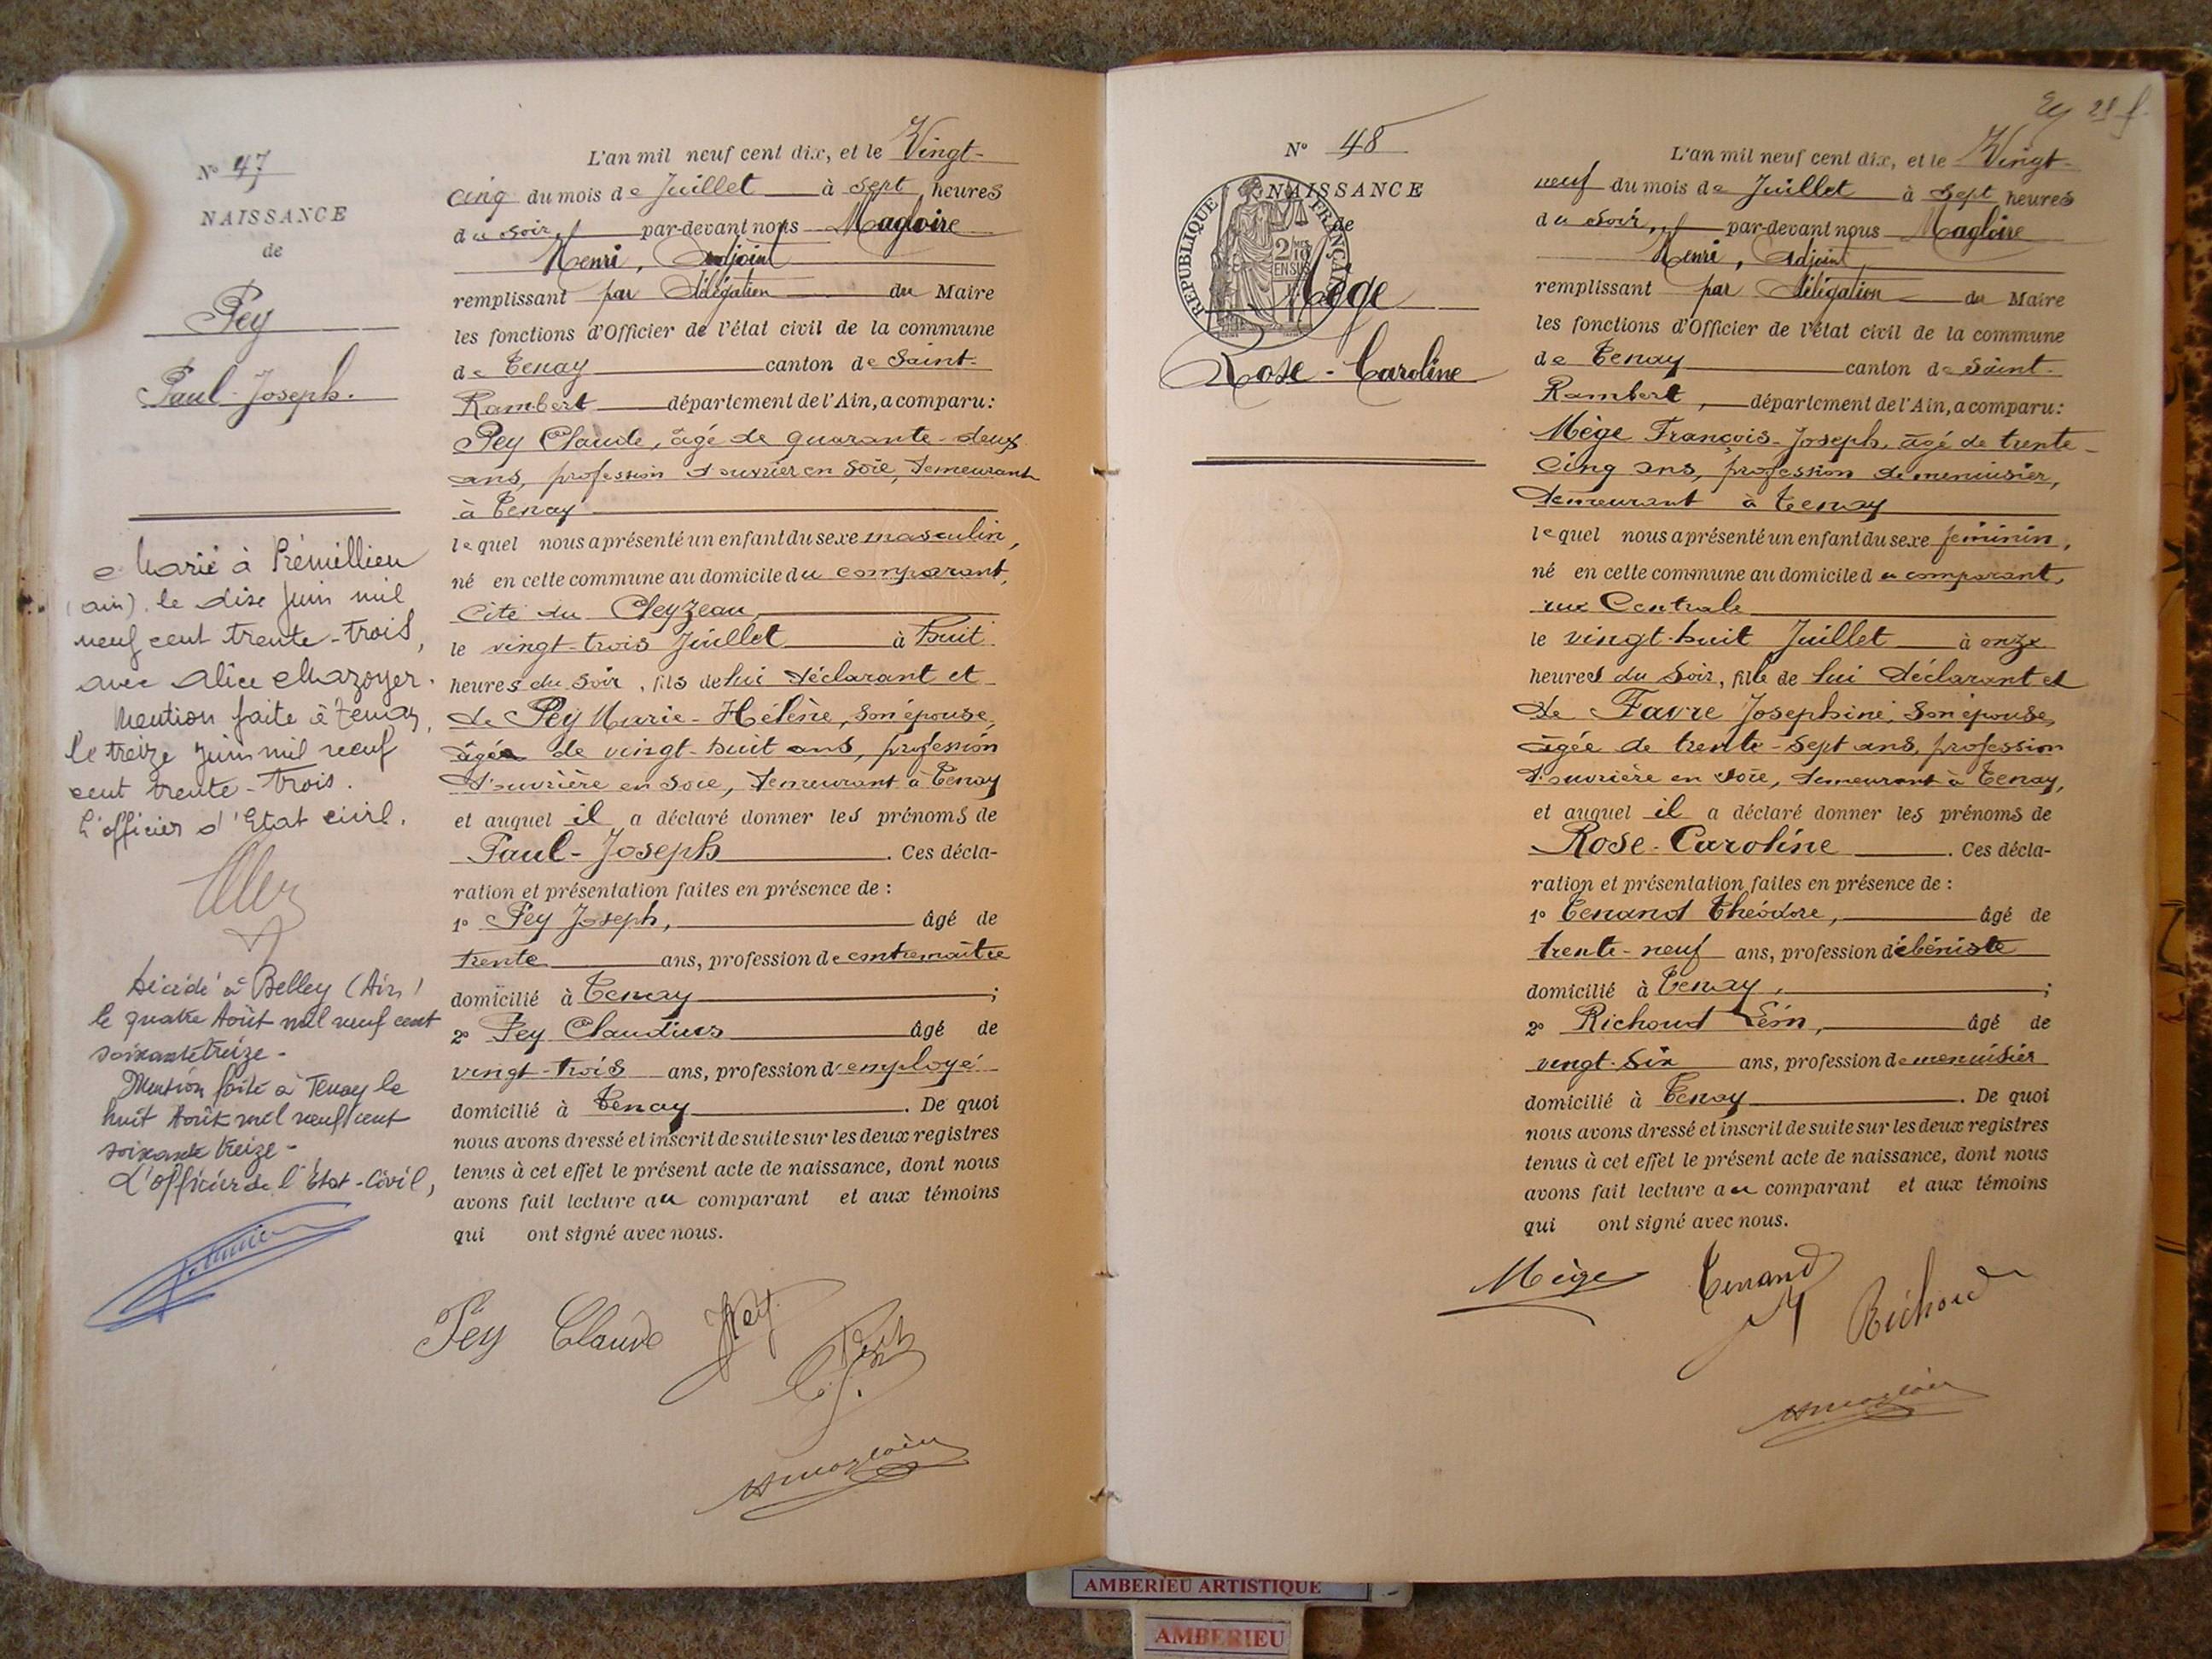 N° 47
NAISSANCE
de
Pey
Paul-Joseph.
Marié à Prémillieu
(ain), le dix Juin mil
neuf cent trente-trois,
avec Alice Mazoyer.
Mention faite à Tenay,
le treize Juin mil neuf
cent trente-trois.
L'officier d'Etat civil.
Décédé à Belley (Ain)
le quatre Août mil neuf cent
soixante treize -
Mention faite à Tenay le
huit Août mil neuf cent
soixante treize -
L'officier de l'État-Civil,
L'an mil neuf cent dix, et le Vingt-
cinq du mois de Juillet à sept heures
du soir, par-devant nous Magloire
Henri, Adjoint
remplissant par Délégation du Maire
les fonctions d'Officier de l'état civil de la commune
de Tenay canton de Saint-
Rambert département de l'Ain, a comparu:
Pey Claude, âgé de quarante-deux
ans, profession d'ouvrier en soie, demeurant
à Tenay
lequel nous a présenté un enfant du sexe masculin,
né en cette commune au domicile du comparant,
Cité du Cleyzeau,
le vingt-trois Juillet à huit
heures du soir, fils de lui déclarant et
de Pey Marie-Hélène, son épouse,
âgée de vingt-huit ans, profession
d'ouvrière en soie, demeurant à Tenay
et auquel il a déclaré donner les prénoms de
Paul-Joseph. Ces décla-
ration et présentation faites en présence de :
1° Pey Joseph, âgé de
trente ans, profession de contremaître
domicilié à Tenay ;
2° Pey Claudius âgé de
vingt-trois ans, profession d'employé
domicilié à Tenay. De quoi
nous avons dressé et inscrit de suite sur les deux registres
tenus à cet effet le présent acte de naissance, dont nous
avons fait lecture au comparant et aux témoins
qui ont signé avec nous.
Pey Claude JPey
HMagloire
N° 48
NAISSANCE
de
RÉPUBLIQUE FRANÇAISE
2/10
EN SUS
Mège
Rose-Caroline
29 f.
L'an mil neuf cent dix, et le Vingt-
neuf du mois de Juillet à sept heures
du soir, par-devant nous Magloire
Henri, Adjoint
remplissant par Délégation du Maire
les fonctions d'Officier de l'état civil de la commune
de Tenay canton de Saint-
Rambert, département de l'Ain, a comparu:
Mège François-Joseph, âgé de trente-
cinq ans, profession de menuisier,
demeurant à Tenay
lequel nous a présenté un enfant du sexe féminin,
né en cette commune au domicile du comparant,
rue Centrale
le vingt-huit Juillet à onze
heures du soir, fille de lui déclarant et
de Favre Josephine, son épouse,
âgée de trente-sept ans, profession
d'ouvrière en soie, demeurant à Tenay,
et auquel il a déclaré donner les prénoms de
Rose-Caroline. Ces décla-
ration et présentation faites en présence de :
1° Tenand Théodore, âgé de
trente-neuf ans, profession d'ébéniste
domicilié à Tenay, ;
2° Richoud Léon, âgé de
vingt-six ans, profession de menuisier
domicilié à Tenay. De quoi
nous avons dressé et inscrit de suite sur les deux registres
tenus à cet effet le présent acte de naissance, dont nous
avons fait lecture au comparant et aux témoins
qui ont signé avec nous.
Mège Tenand Richoud
HMagloire
AMBERIEU ARTISTIQUE
AMBERIEU